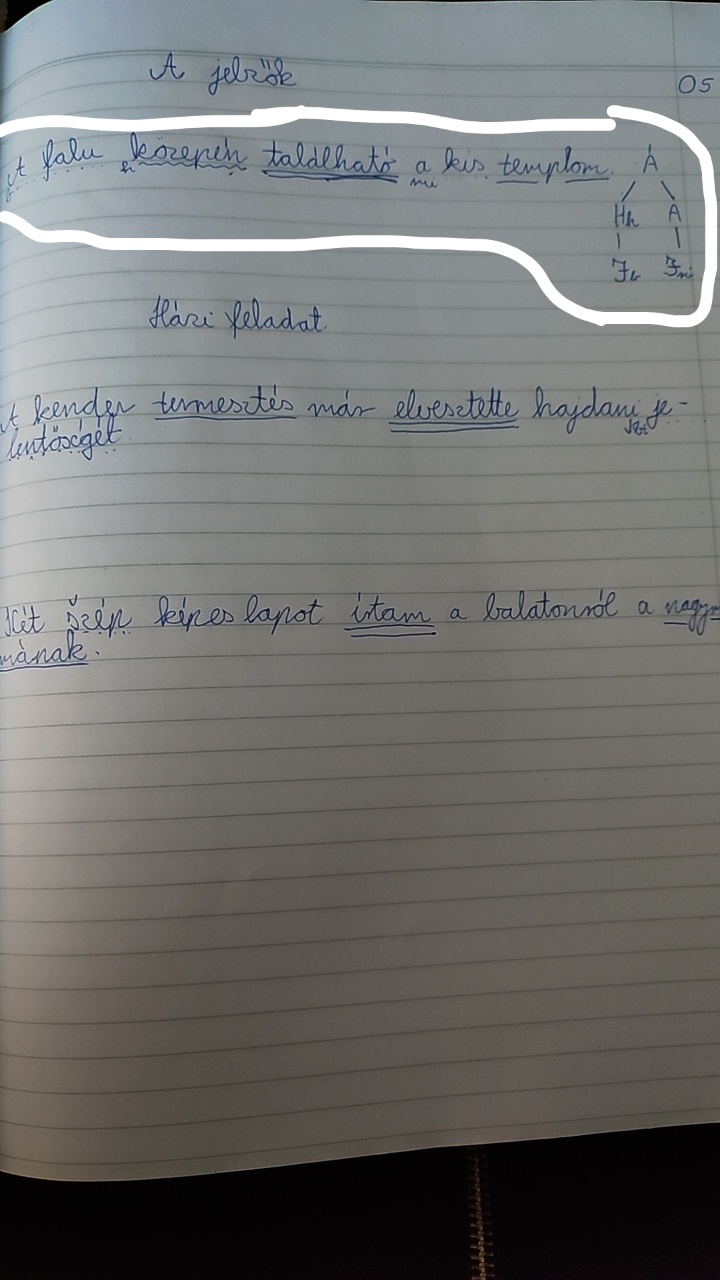 A jelzők
05
A falu közepén található a kis templom. Á
h mi
Hh A
Jb Jmi
Házi feladat
A kender termesztés már elvesztette hajdani je-
lentőségét.
Két szép képes lapot írtam a balatonról a nagyma
mának.